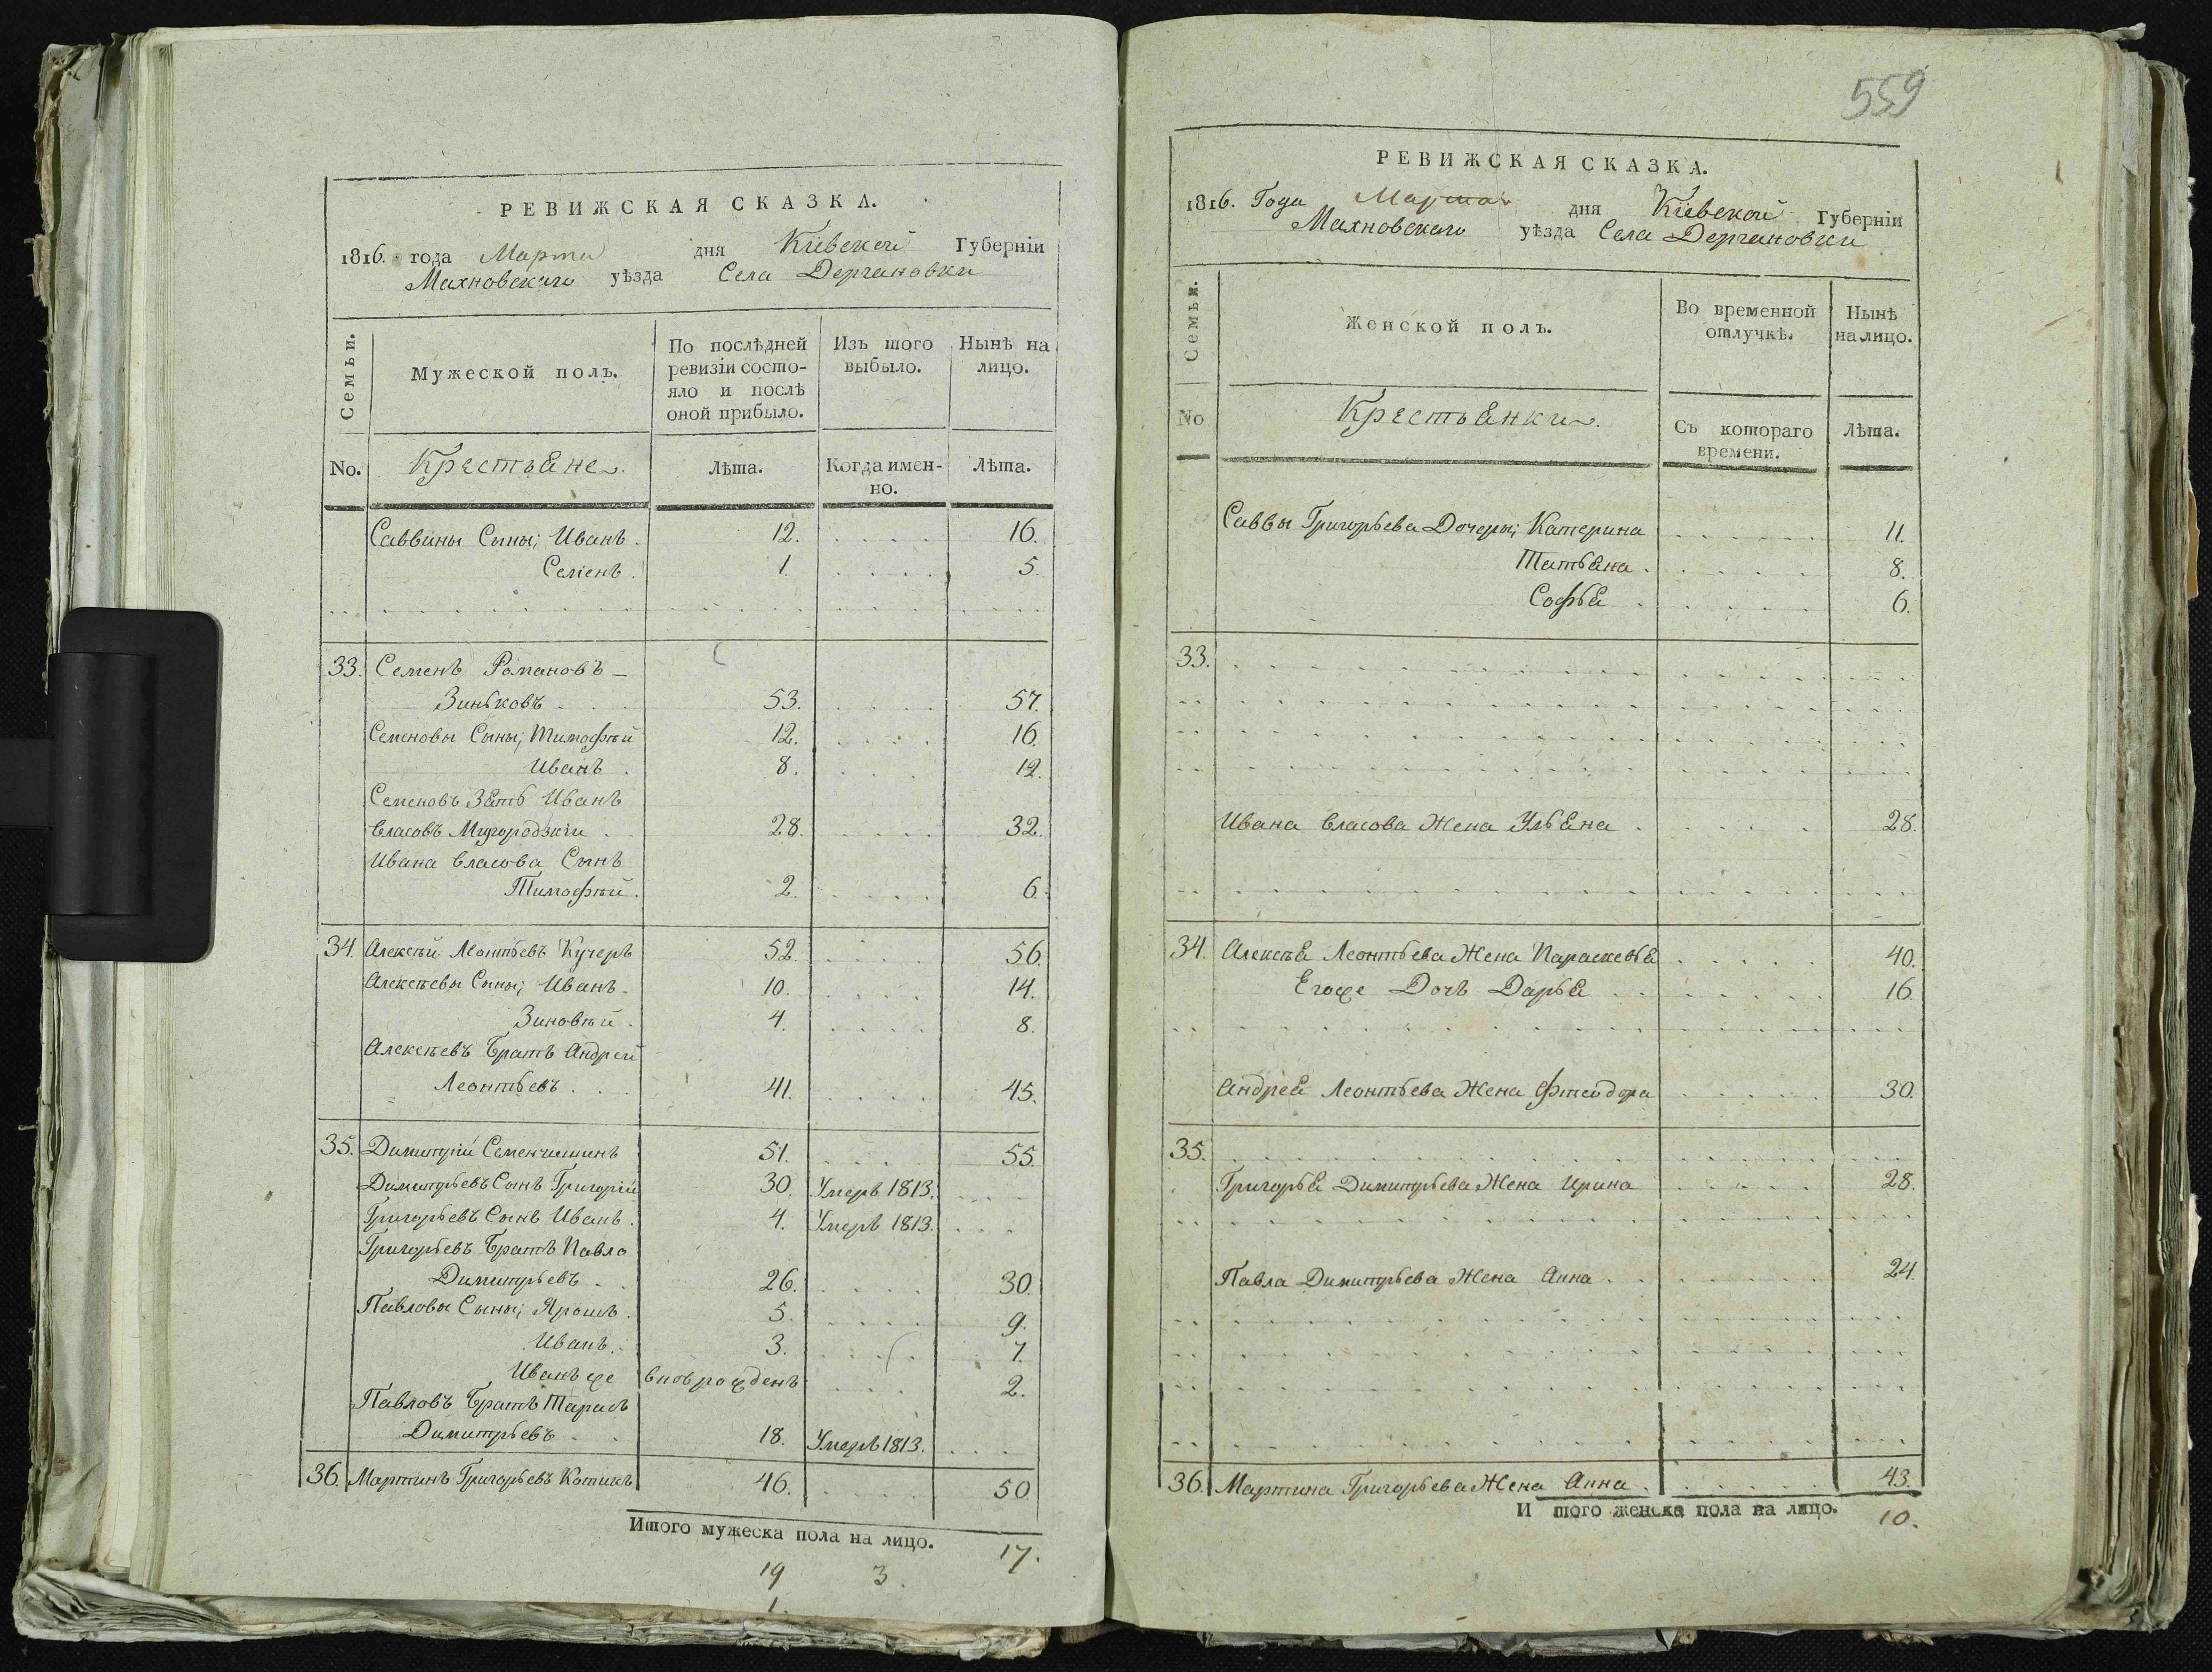 РЕВИЖСКАЯ СКАЗКА.
1816. года Марта дня Кіевской Губерніи
Махновскаго уѣзда Села Дергановки
Семьи.
Мужеской полъ.
По послѣдней
ревизіи состо-
яло и послѣ
оной прибыло.
Изъ того
выбыло.
Нынѣ на
лицо.
No. Крестьяне Лѣта. Когда имен-
но. Лѣта.
Саввины Сыны; Иванъ. 12. 16.
Семенъ. 1. 5.
33. Семенъ Романовъ
Зиньковъ 53. 57.
Семеновы Сыны; Тимофѣй 12. 16.
Иванъ. 8. 12.
Семеновъ Зять Иванъ
Власовъ 28. 32.
Ивана Власова Сынъ
Тимофѣй. 2. 6.
34. Алексѣй Леонтьевъ Кучеръ 52. 56.
Алексѣевы Сыны; Иванъ. 10. 14.
Зиновѣй. 4. 8.
Алексѣевъ Братъ Андрей
Леонтьевъ. 41. 45.
35. Димитрій Семенчишинъ 51. 55.
Димитрьевъ Сынъ Григорій 30. Умеръ 1813.
Григорьевъ Сынъ Иванъ. 4. Умеръ 1813.
Григорьевъ Братъ Павло
Димитрьевъ. 26. 30.
Павловы Сыны; Ярошъ. 5. 9.
Иванъ. 3. 7.
Иванъ же вновьрожденъ 2.
Павловъ Братъ Тарасъ
Димитрьевъ. 18. Умеръ 1813.
36. Мартинъ Григорьевъ Котикъ 46. 50.
Итого мужеска пола на лицо. 17.
19 3.
1.
559
РЕВИЖСКАЯ СКАЗКА.
1816. Года Марта дня Кіевской Губерніи
Махновскаго уѣзда Села Дергановки
Семья.
Женской полъ.
Во временной
отлучкѣ.
Нынѣ
на лицо.
No Крестьянки. Съ котораго
времени. Лѣта.
Саввы Григорьева Дочери; Катерина 11.
Татьяна. 8.
Софья 6.
33.
Ивана Власова Жена Ульяна. 28.
34. Алексѣя Леонтьева Жена Параскевья 40.
Егоже Дочь Дарья 16.
Андрея Леонтьева Жена 30.
35.
Григорья Димитрьева Жена Ирина 28.
Павла Димитрьева Жена Анна. 24.
36. Мартина Григорьева Жена Анна. 43.
И того женска пола на лицо. 10.